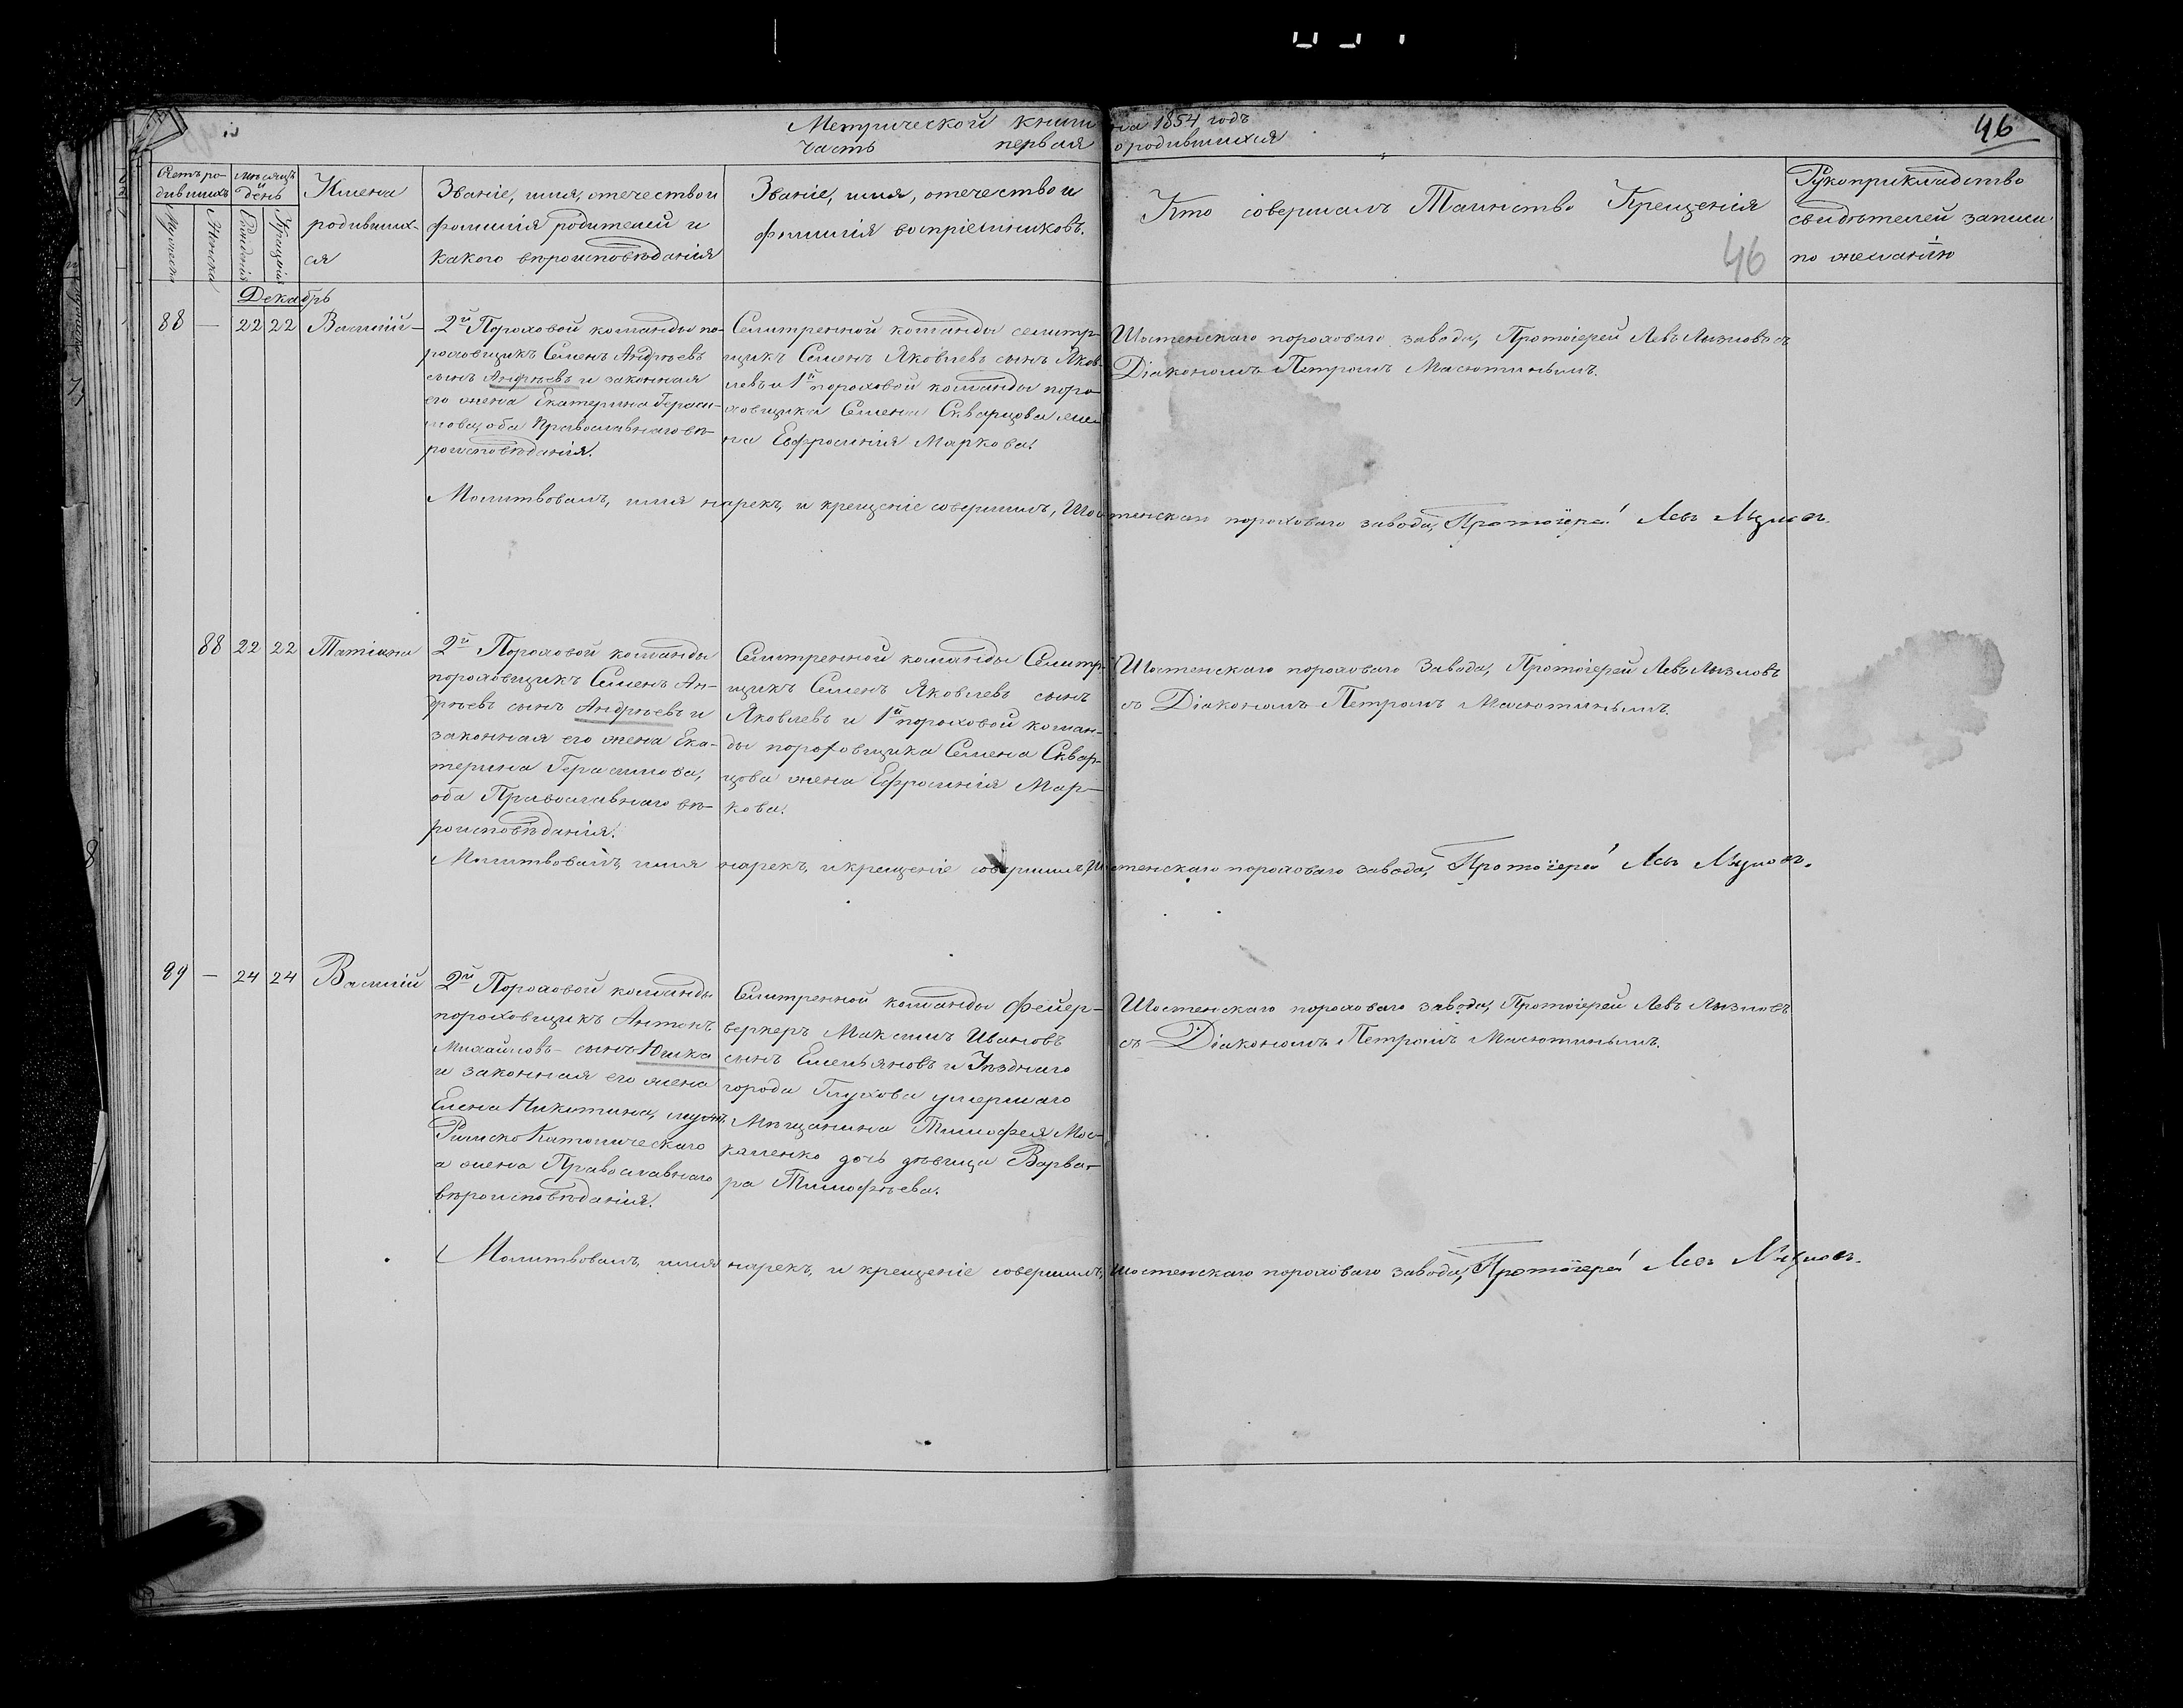 Метрической книги на 1854 годъ
46
часть первая о родившихся
Счетъ ро-
дившихъ
Мужеска
Женска
Мѣсяцъ
и
день
Рожденія
Крещенія
Имена
родивших-
ся
Званіе, имя, отечество и
фамилія родителей и
какого вѣроисповѣданія
Званіе, имя, отечество и
фамилія воспріемниковъ.
Кто совершалъ Таинство Крещенія
46
Рукоприкладство
свидѣтелей записи
по желанію
Декабрь
88 — 22 22 Василій
2й Пороховой команды по-
роховщикъ Семенъ Андрѣевъ
сынъ Андрѣевъ и законная
его жена Екатерина Гераси-
мова, оба Православнаго вѣ-
роисповѣданія.
Селитренной команды селитр-
щикъ Семенъ Яковлевъ сынъ Яков-
левъ и 1й пороховой команды поро-
ховщика Семена Скварцова же-
на Евфросинія Маркова.
Шостенскаго пороховаго завода, Протоіерей Левъ Лызловъ съ
Діакономъ Петромъ Масютинымъ.
Молитвовалъ, имя нарекъ, и крещеніе совершилъ, Шостенскаго пороховаго завода, Протоіерей Левъ Лызловъ.
88 22 22 Татіана
2й Пороховой команды
пороховщикъ Семенъ Ан-
дрѣевъ сынъ Андрѣевъ и
законная его жена Ека-
терина Герасимова,
оба Православнаго вѣ-
роисповѣданія.
Селитренной команды Селитр-
щикъ Семенъ Яковлевъ сынъ
Яковлевъ и 1й пороховой коман-
ды пороховщика Семена Сквар-
цова жена Ефросинія Мар-
кова.
Шостенскаго пороховаго завода, Протоіерей Левъ Лызловъ
съ Діакономъ Петромъ Масютинымъ.
Молитвовалъ, имя нарекъ, и крещеніе совершилъ, Шостенскаго пороховаго завода, Протоіерей Левъ Лызловъ.
89 — 24 24 Василій
2й Пороховой команды
пороховщикъ Антонъ
Михайловъ сынъ Юшка
и законная его жена
Елена Никитина, мужъ
Римско Католическаго
а жена Православнаго
вѣроисповѣданія.
Селитренной команды фейер-
веркеръ Максимъ Ивановъ
сынъ Емельяновъ и Уѣзднаго
города Глухова умершаго
Мѣщанина Тимофея Мос-
каленко дочь дѣвица Варва-
ра Тимофѣева.
Шостенскаго пороховаго завода, Протоіерей Левъ Лызловъ
съ Діакономъ Петромъ Масютинымъ.
Молитвовалъ, имя нарекъ, и крещеніе совершилъ, Шостенскаго пороховаго завода, Протоіерей Левъ Лызловъ.